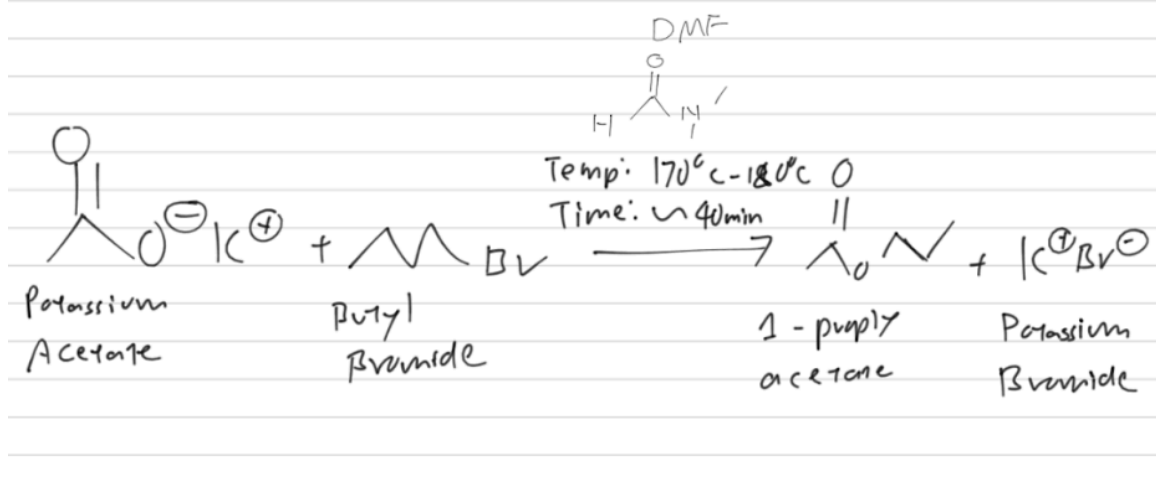 DMF
O
H N
Temp: 170°C-180°C
Time: ~ 40min
O
O⊖K⊕ + Br
O
O + K⊕Br⊖
Potassium
Acetate
Butyl
Bromide
1-proply
acetate
Potassium
Bromide